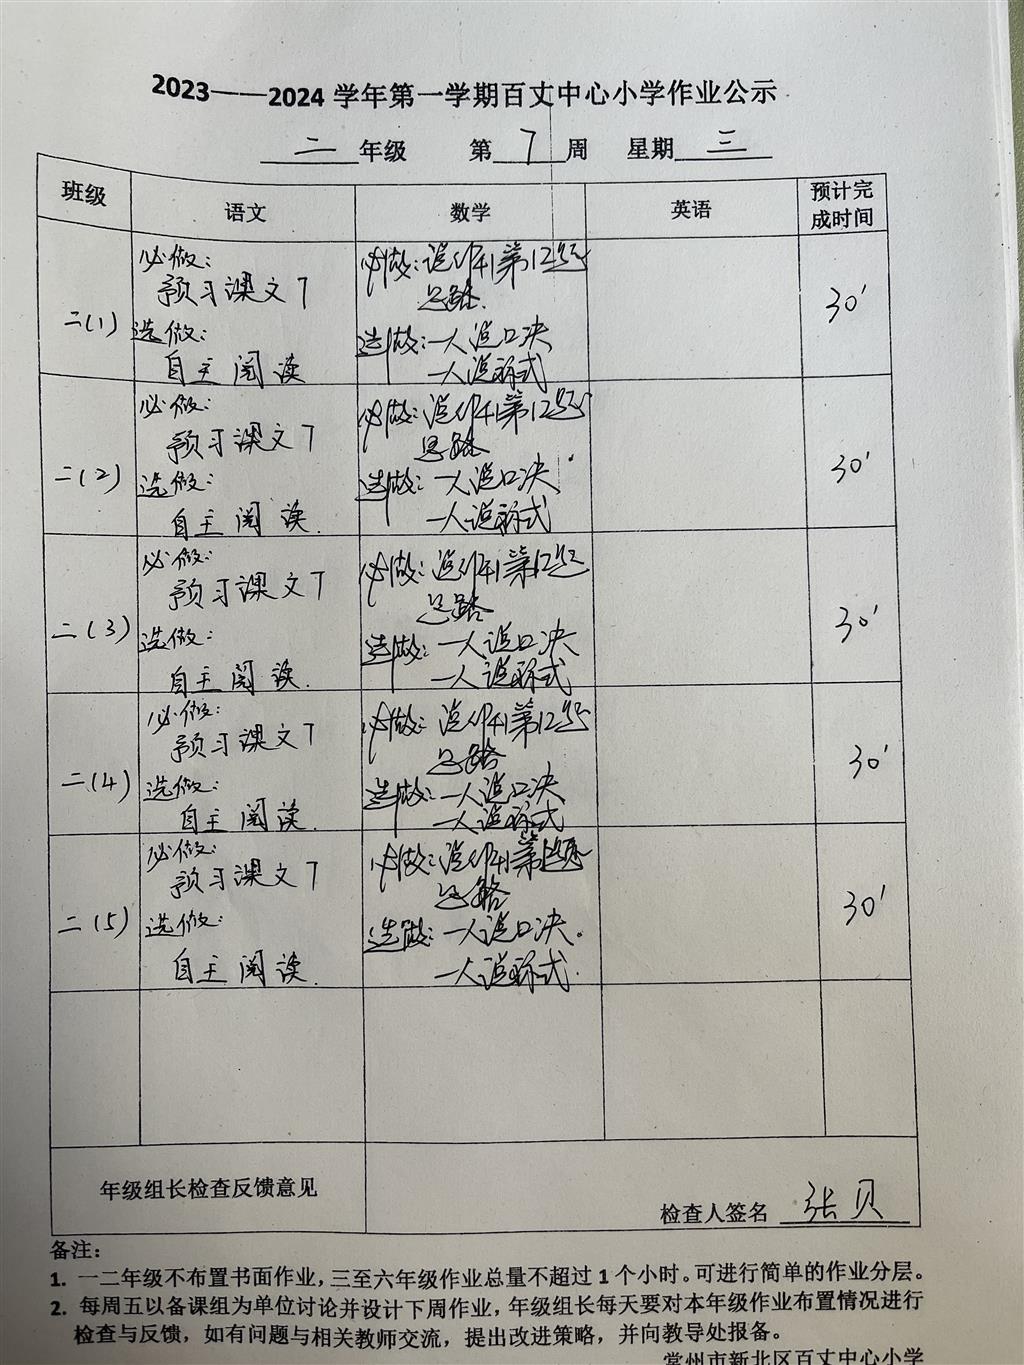 2023——2024 学年第一学期百丈中心小学作业公示
二 年级 第 7 周 星期 三
班级 语文 数学 英语 预计完成时间
二(1)
必做:
预习课文7
选做:
自主阅读
必做:说P41第12题
思路.
选做:一人说口决
一人说算式
30'
二(2)
必做:
预习课文7
选做:
自主阅读.
必做:说P41第12题
思路
选做:一人说口决
一人说算式
30'
二(3)
必做:
预习课文7
选做:
自主阅读.
必做:说P41第12题
思路
选做:一人说口决
一人说算式
30'
二(4)
必做:
预习课文7
选做:
自主阅读.
必做:说P41第12题
思路
选做:一人说口决
一人说算式
30'
二(5)
必做:
预习课文7
选做:
自主阅读.
必做:说P41第12题
思路
选做:一人说口决.
一人说算式.
30'
年级组长检查反馈意见
检查人签名 张贝
备注:
1. 一二年级不布置书面作业,三至六年级作业总量不超过 1 个小时。可进行简单的作业分层。
2. 每周五以备课组为单位讨论并设计下周作业,年级组长每天要对本年级作业布置情况进行
检查与反馈,如有问题与相关教师交流,提出改进策略,并向教导处报备。
常州市新北区百丈中心小学